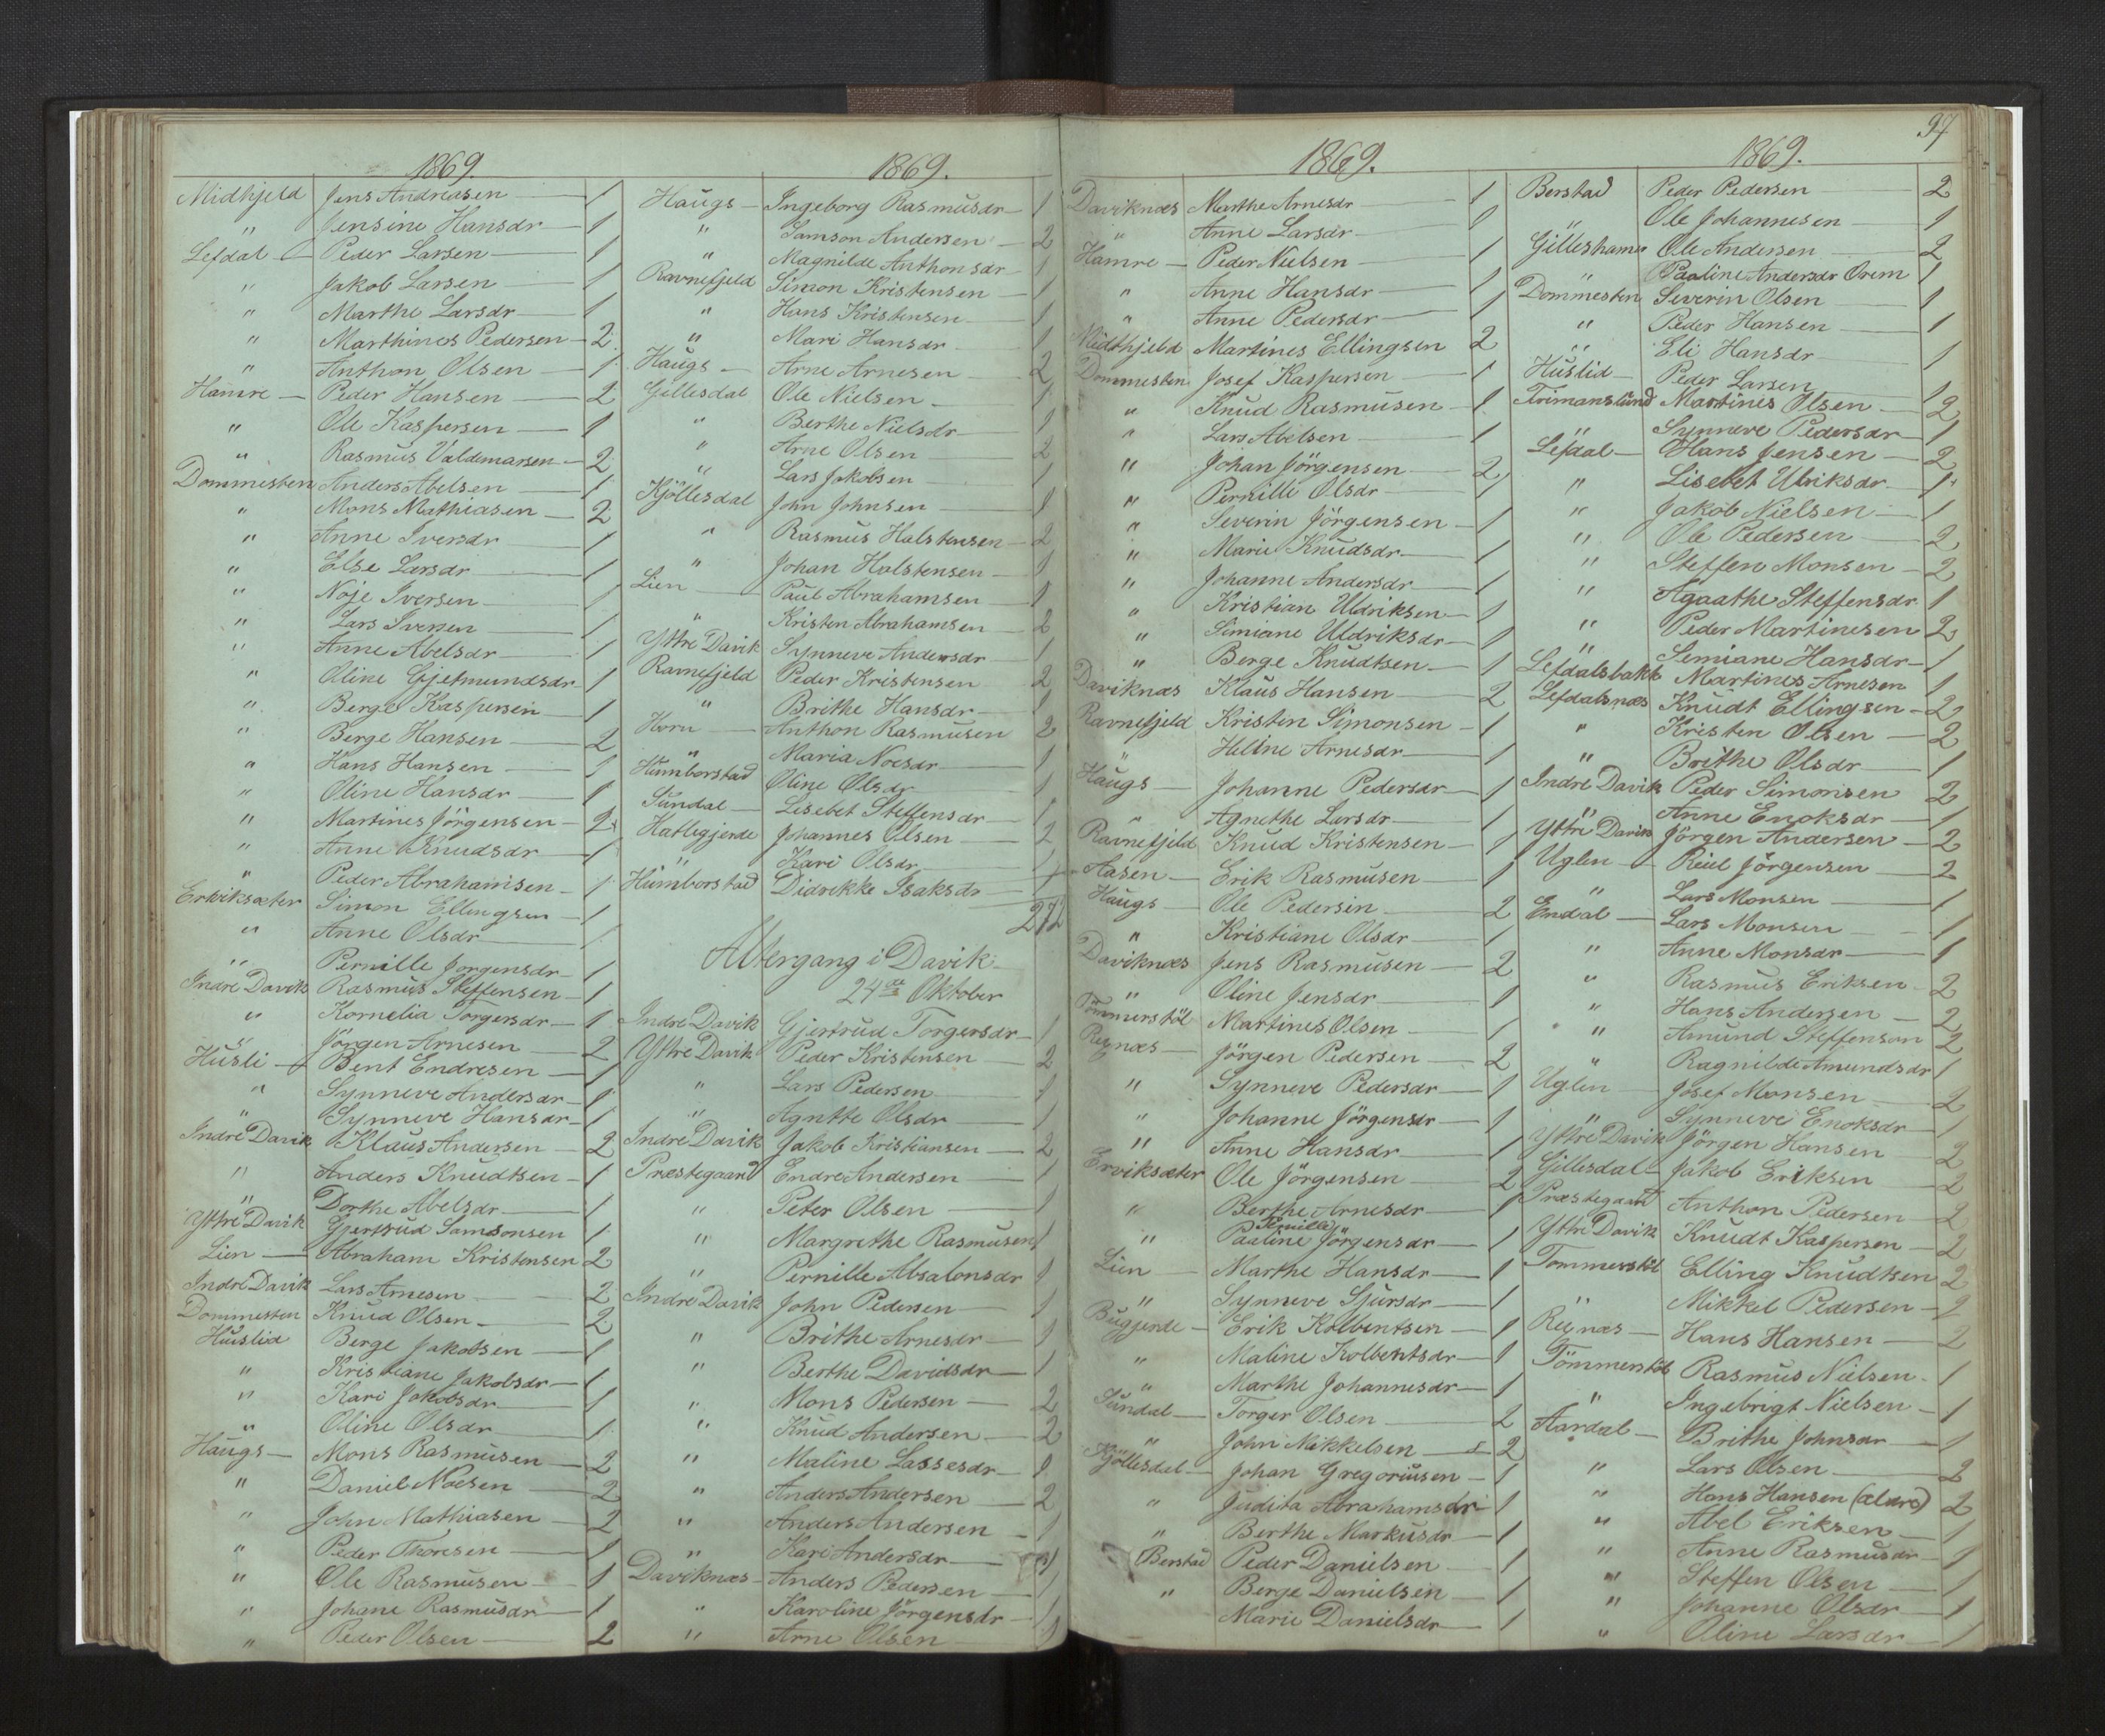 1869.
Midhjeld Jens Andreasen 1
" Jensine Hansdr 1
Lefdal Peder Larsen 1
" Jakob Larsen 1
" Marthe Larsdr 1
" Marthines Pedersen 2
" Anthon Olsen 1
Hamre Peder Hansen 2
" Ole Kaspersen 1
" Rasmus Valdemarsen 2
Dommesten Anders Abelsen 1
" Mons Mathiasen 2
" Anne Iversdr 1
" Else Larsdr 1
" Noje Iversen 1
" Lars Iversen 1
" Anne Abelsdr 1
" Oline Gjetmundsdr 1
" Berge Kaspersen 1
" Berge Hansen 2
" Hans Hansen 1
" Oline Hansdr 1
" Martines Jörgensen 2
" Anne Knudsdr 1
" Peder Abrahamsen 1
Erviksæter Simon Ellingsen 1
" Anne Olsdr 1
" Pernille Jorgensdr 1
Indre Davik Rasmus Steffensen 1
" Kornelia Torgersdr 1
" Jörgen Arnesen 2
Husli Bent Endresen 1
" Synneve Andersdr 1
" Synneve Hansdr 1
Indre Davik Klaus Andersen 2
" Anders Knudtsen 1
" Dorthe Abelsdr 1
Yttre Davik Gjertrud Samsonsen 1
Lien Abraham Kristensen 2
Indre Davik Lars Arnesen 2
Dommesten Knud Olsen 2
Huslid Berge Jakobsen 1
" Kristiane Jakobsdr 1
" Kari Jakobsdr 1
" Oline Olsdr 1
Haugs Mons Rasmusen 2
" Daniel Noesen 2
" John Mathiasen 2
" Peder Thoresen 1
" Ole Rasmusen 1
" Johane Rasmusdr 1
" Peder Olsen 2
1869.
Haugs Ingeborg Rasmusdr 1
" Samson Andersen 2
" Magnilde Anthonsdr 1
Ravnefjeld Simon Kristensen 1
" Hans Kristensen 1
" Mari Hansdr 1
Haugs Arne Arnesen 2
Gillesdal Ole Nielsen 1
" Berthe Nielsdr 1
" Arne Olsen 2
" Lars Jakobsen 1
Hjöllesdal John Johnsen 1
" Rasmus Halstensen 2
" Johan Halstensen 1
Lien Paul Abrahamsen 1
" Kristen Abrahamsen 2
Yttre Davik Synneve Andersdr 1
Ravnefjeld Peder Kristensen 2
" Brithe Hansdr 1
Horn Anthon Rasmusen 2
" Maria Noesdr 1
Humborstad Oline Olsdr 1
Sundal Lisebet Steffensdr 1
Hatlegjerde Johannes Olsen 2
" Kari Olsdr 1
Humborstad Didrikke Isaksdr 1
272
Altergang i Davik
24de Oktober
Indre Davik Gjertrud Torgersdr 1
Yttre Davik Peder Kristensen 2
" Lars Pedersen 1
" Agntte Olsdr 1
Indre Davik Jakob Kristiansen 2
Præstegaard Endre Andersen 1
" Peter Olsen 1
" Margrethe Rasmusen 1
" Pernille Absalonsdr 1
Indre Davik John Pedersen 1
" Brithe Arnesdr 1
" Berthe Davidsdr 1
" Mons Pedersen 2
" Knud Andersen 2
" Maline Lassesdr 1
" Anders Andersen 2
" Anders Andersen 1
" Kari Andersdr 1
Daviknæs Anders Pedersen 1
" Karoline Jörgensdr 1
" Arne Olsen 1
97
1869.
Daviknæs Marthe Arnesdr 1
" Anne Larsdr 1
Hamre Peder Nielsen 1
" Anne Hansdr 1
" Anne Pedersdr 1
Midthjeld Martines Ellingsen 2
Dommesten Josef Kaspersen 1
" Knud Rasmusen 1
" Lars Abelsen 1
" Johan Jörgensen 2
" Pernille Olsdr 1
" Severin Jörgensen 1
" Marie Knudsdr 1
" Johanne Andersdr 1
" Kristian Uldriksen 1
" Simiane Uldriksdr 1
" Berge Knudtsen 1
Daviknæs Klaus Hansen 2
Ravnefjeld Kristen Simonsen 1
" Heline Arnesdr 1
Haugs Johanne Pedersdr 1
" Agnethe Larsdr 1
Ravnefjeld Knud Kristensen 1
Aasen Erik Rasmusen 1
Haugs Ole Pedersen 2
" Kristiane Olsdr 1
Daviknæs Jens Rasmusen 2
" Oline Jensdr 1
Tömmerstöl Martines Olsen 1
Regnæs Jörgen Pedersen 2
" Synneve Pedersdr 1
" Johanne Jörgensdr 1
" Anne Hansdr 1
Erviksæter Ole Jörgensen 2
" Berthe Arnesdr 1
Pernille
" Pauline Jörgensdr 1
Lien Marthe Hansdr 1
" Synneve Sjursdr 1
Bugjerde Erik Kolbentsen 1
" Maline Kolbentsdr 1
" Marthe Johannesdr 1
Sundal Torger Olsen 2
" John Mikkelsen 2
Hjöllesdal Johan Gregoriusen 1
" Judita Abrahamsdr 1
" Berthe Markusdr 1
Berstad Peder Danielsen 1
" Berge Danielsen 1
Marie Danielsdr 1
1869.
Berstad Peder Pedersen 2
" Ole Johannesen 1
Gilleshamer Ole Andersen 2
" Pauline Andersdr Orem 1
Dommesten Severin Olsen 1
" Peder Hansen 1
" Eli Hansdr 1
Huslid Peder Larsen 1
Trimanslund Martines Olsen 2
" Synneve Pedersdr 1
Lefdal Hans Jensen 2
" Lisebet Ulriksdr 1
" Jakob Nielsen 1
" Ole Pedersen 2
" Steffen Monsen 2
" Agaathe Steffensdr 1
" Peder Martinesen 2
" Semiane Hansdr 1
Lefdalsbakk Martines Arnesen 1
Lefdalsnæs Knudt Ellingsen 2
" Kristen Olsen 2
" Brithe Olsdr 1
Indre Davik Peder Simonsen 2
" Anne Enoksdr 1
Yttre Davik Jörgen Andersen 2
Uglen Reiel Jörgensen 2
" Lars Monsen 1
Endal Lars Monsen 1
" Anne Monsdr 1
" Rasmus Eriksen 2
" Hans Andersen 2
" Amund Steffenson 2
" Ragnilde Amundsdr 1
Uglen Josef Monsen 2
" Synneve Enoksdr 1
Yttre Davik Jörgen Hansen 2
Gillesdal Jakob Eriksen 2
Præstegaard Anthon Pedersen 2
Yttre Davik Knudt Kaspersen 2
Tommerstöl Elling Knudtsen 2
" Mikkel Pedersen 2
Regnæs Hans Hansen 2
Tömmerstöl Rasmus Nielsen 1
" Ingebrigt Nielsen 1
Aardal Brithe Johnsdr 1
" Lars Olsen 2
" Hans Hansen (ældre) 2
" Abel Eriksen 1
" Anne Rasmusdr 1
" Steffen Olsen 1
" Johanne Olsdr 1
" Oline Larsdr 1